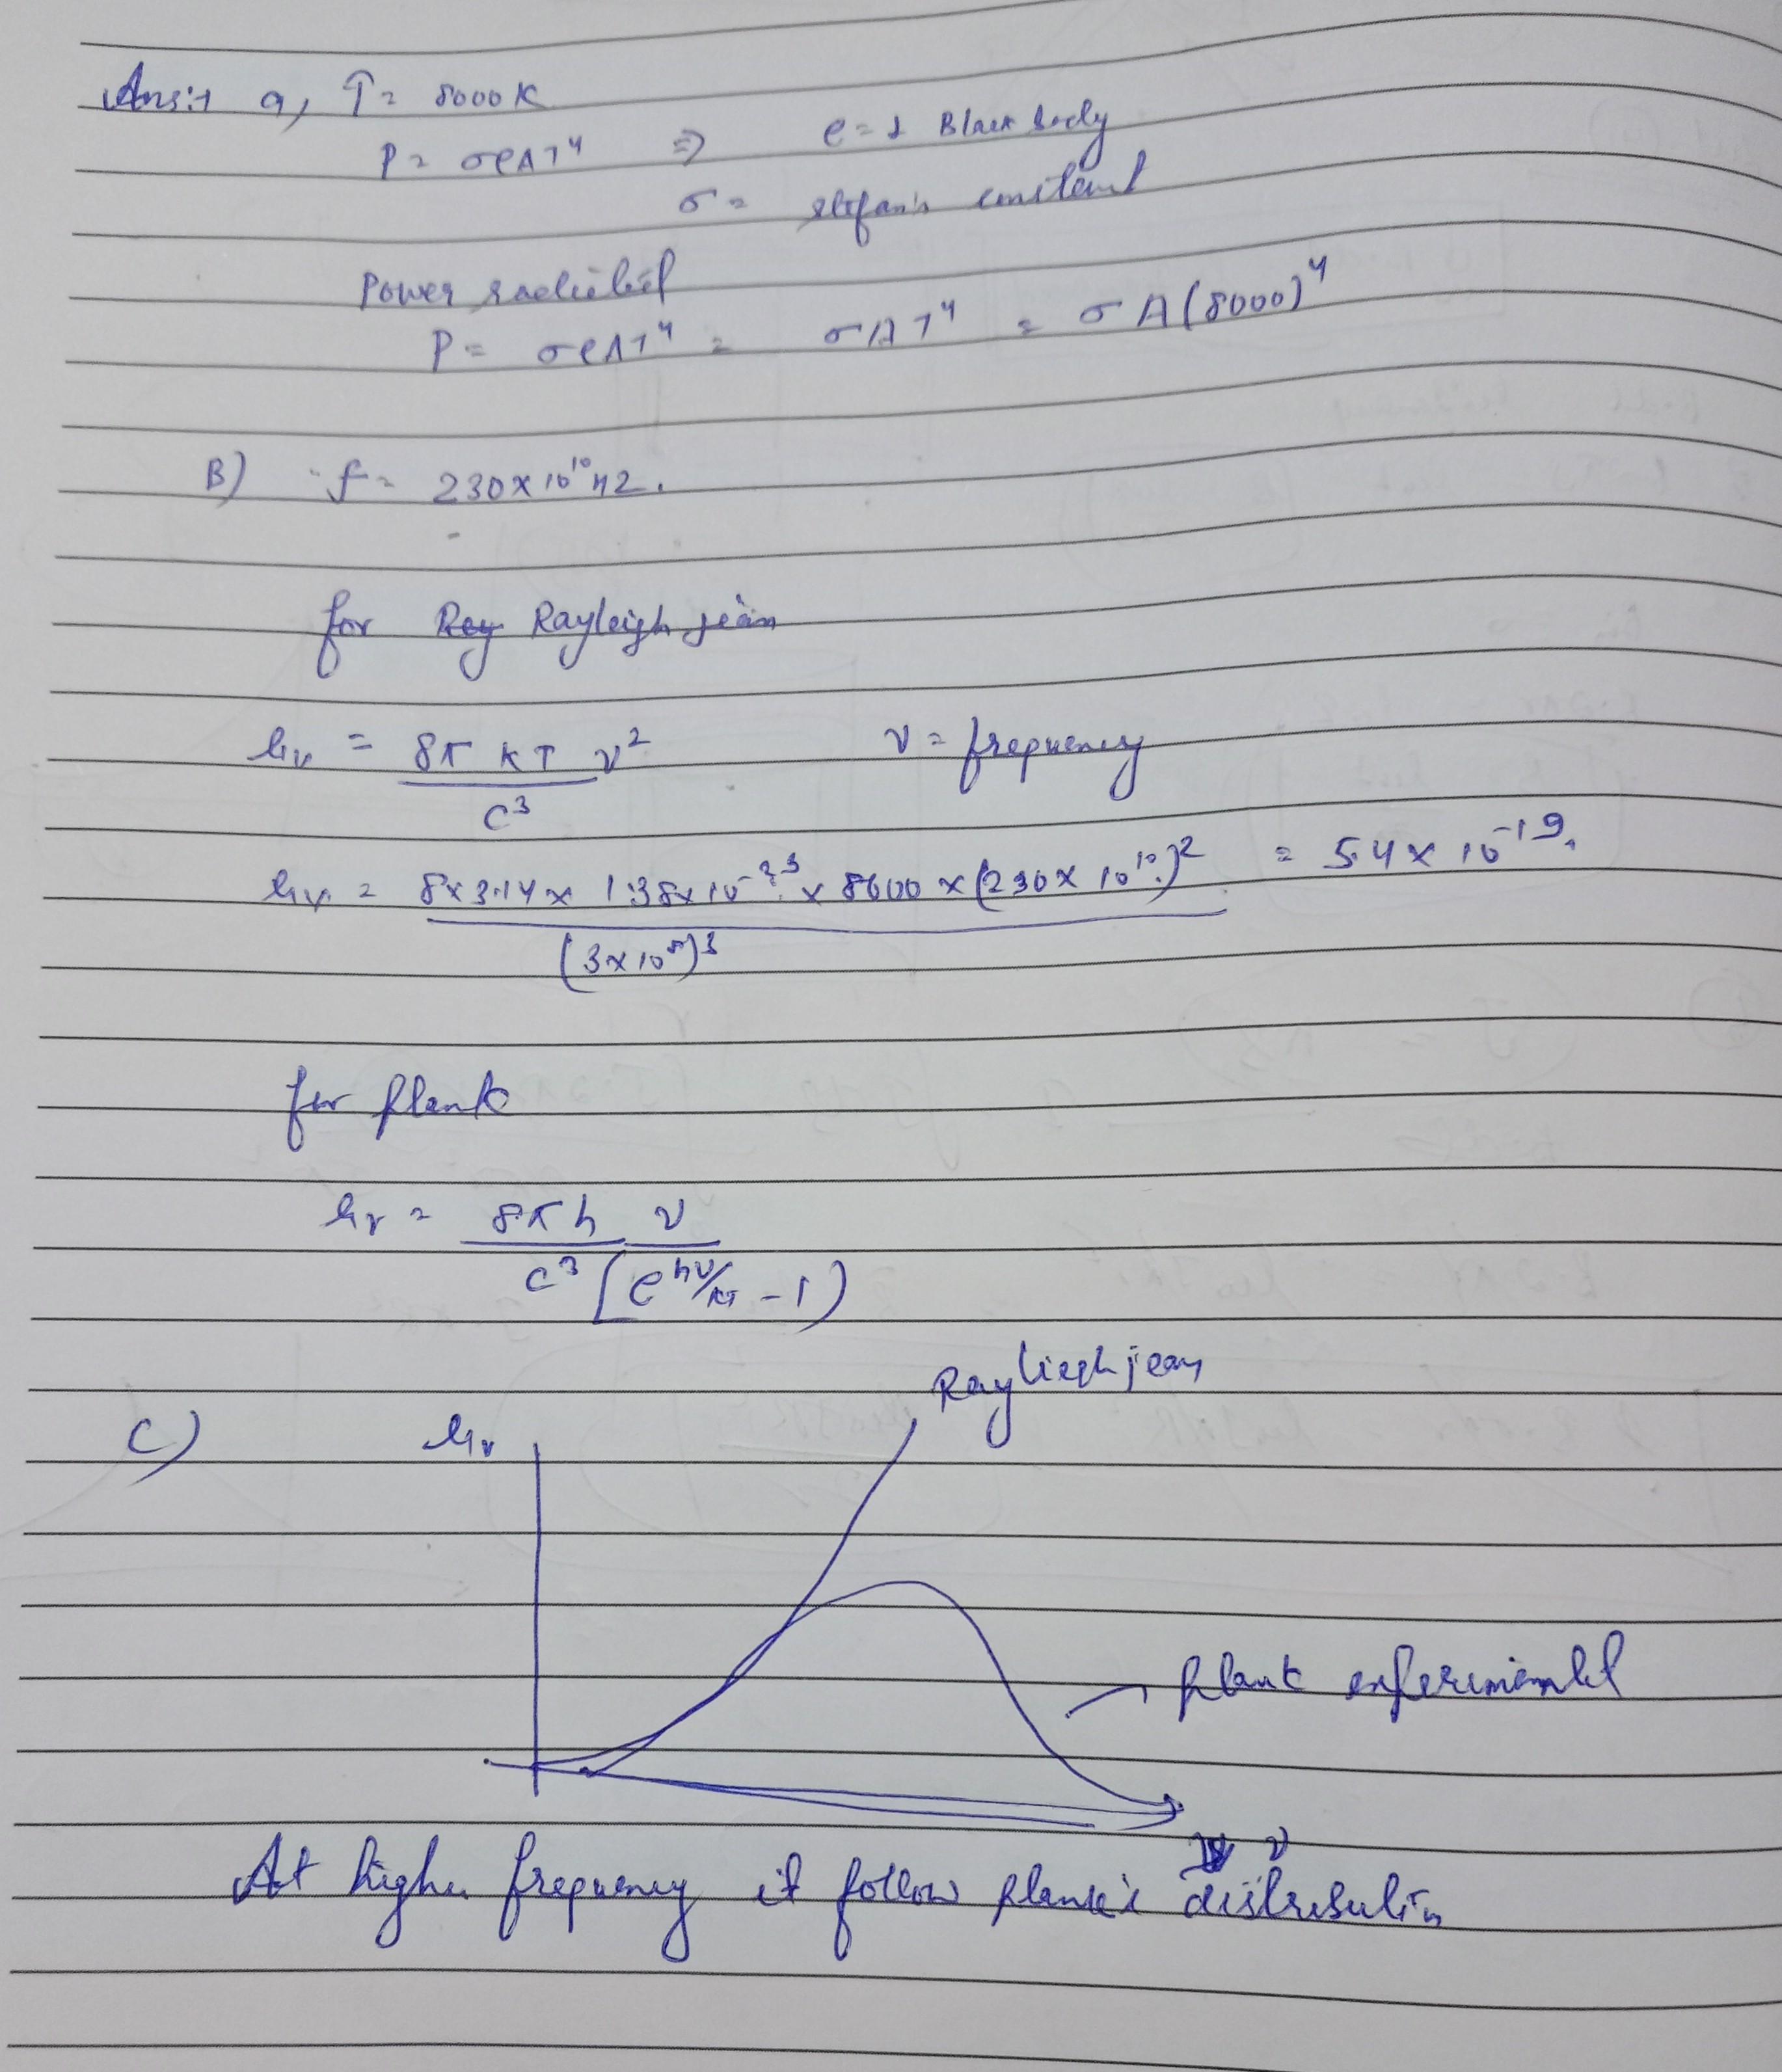 Ans:1 a, T = 8000 K
P = σeAT⁴ ⇒ e = 1 Black body
σ = stefan's constant
Power radiated
P = σeAT⁴ = σAT⁴ = σA(8000)⁴
B) f = 230×10¹⁰ HZ.
for Ray Rayleigh jean
uᵥ = 8π kT ν² / c³ ν = frequency
uᵥ = 8×3.14× 1.38×10⁻²³ × 8000 × (230× 10¹⁰)² / (3×10⁸)³ = 5.4× 10⁻¹⁹.
for plank
uᵥ = 8πh ν / c³ [e^hν/kT - 1)
Rayliegh jean
C) uᵥ
plank experimental
ν
At higher frequency it follow plank's distribution